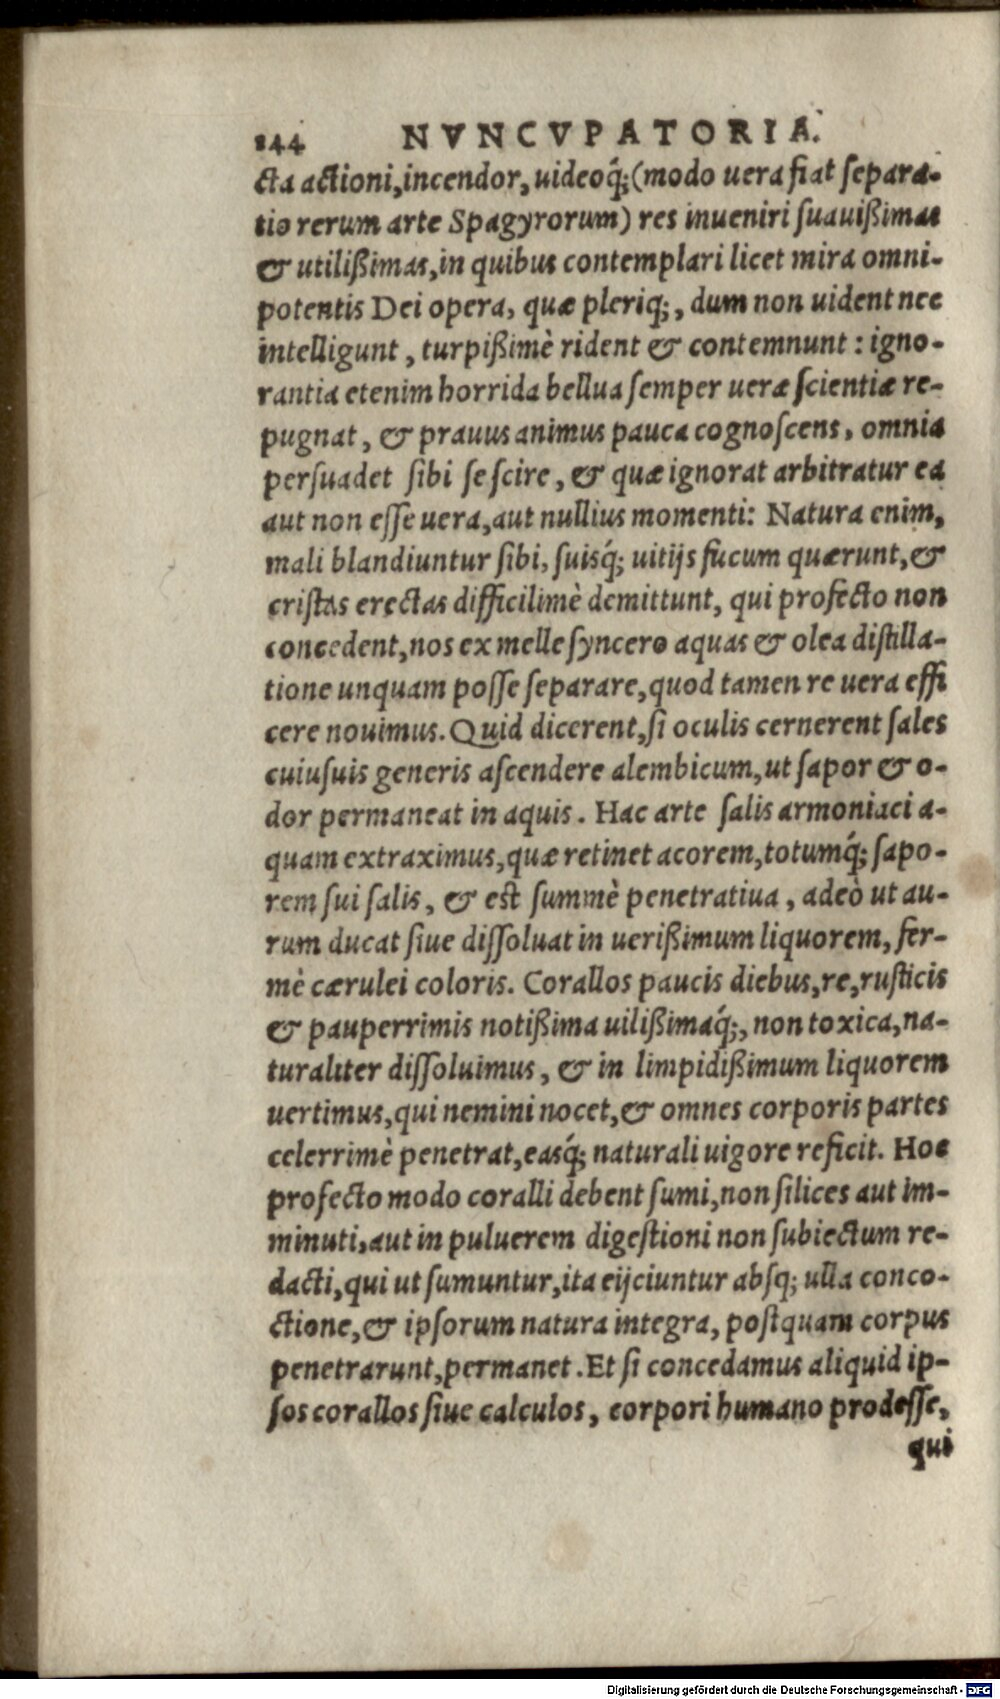 244 NVNCVPATORIA.
cta actioni,incendor, uideoq́;(modo uera fiat ſepara-
tio rerum arte Spagyrorum) res inueniri ſuauißimas
& utilißimas,in quibus contemplari licet mira omni-
potentis Dei opera, quæ pleriq;, dum non uident nec
intelligunt, turpißimè rident & contemnunt : igno-
rantia etenim horrida bellua ſemper ueræ ſcientiæ re-
pugnat, & prauus animus pauca cognoſcens, omnia
perſuadet ſibi ſe ſcire, & quæ ignorat arbitratur ea
aut non eſſe uera,aut nullius momenti: Natura enim,
mali blandiuntur ſibi, ſuisq́; uitijs fucum quærunt,&
criſtas erectas difficilimè demittunt, qui profecto non
concedent,nos ex melle ſyncero aquas & olea diſtilla-
tione unquam poſſe ſeparare,quod tamen re uera effi
cere nouimus. Quid dicerent,ſi oculis cernerent ſales
cuiuſuis generis aſcendere alembicum,ut ſapor & o-
dor permaneat in aquis. Hac arte ſalis armoniaci a-
quam extraximus,quæ retinet acorem,totumq́; ſapo-
rem ſui ſalis, & est ſummè penetratiua, adeò ut au-
rum ducat ſiue diſſoluat in uerißimum liquorem, fer-
mè cærulei coloris. Corallos paucis diebus,re,ruſticis
& pauperrimis notißima uilißimaq́;, non toxica,na-
turaliter diſſoluimus, & in limpidißimum liquorem
uertimus,qui nemini nocet,& omnes corporis partes
celerrimè penetrat,easq́; naturali uigore reficit. Hoc
profecto modo coralli debent ſumi,non ſilices aut im-
minuti,aut in puluerem digeſtioni non ſubiectum re-
dacti,qui ut ſumuntur,ita eijciuntur abſq; ulla conco-
ctione,& ipſorum natura integra, poſtquam corpus
penetrarunt,permanet. Et ſi concedamus aliquid ip-
ſos corallos ſiue calculos, corpori humano prodeſſe,
qui
Digitalisierung gefördert durch die Deutsche Forschungsgemeinschaft - DFG